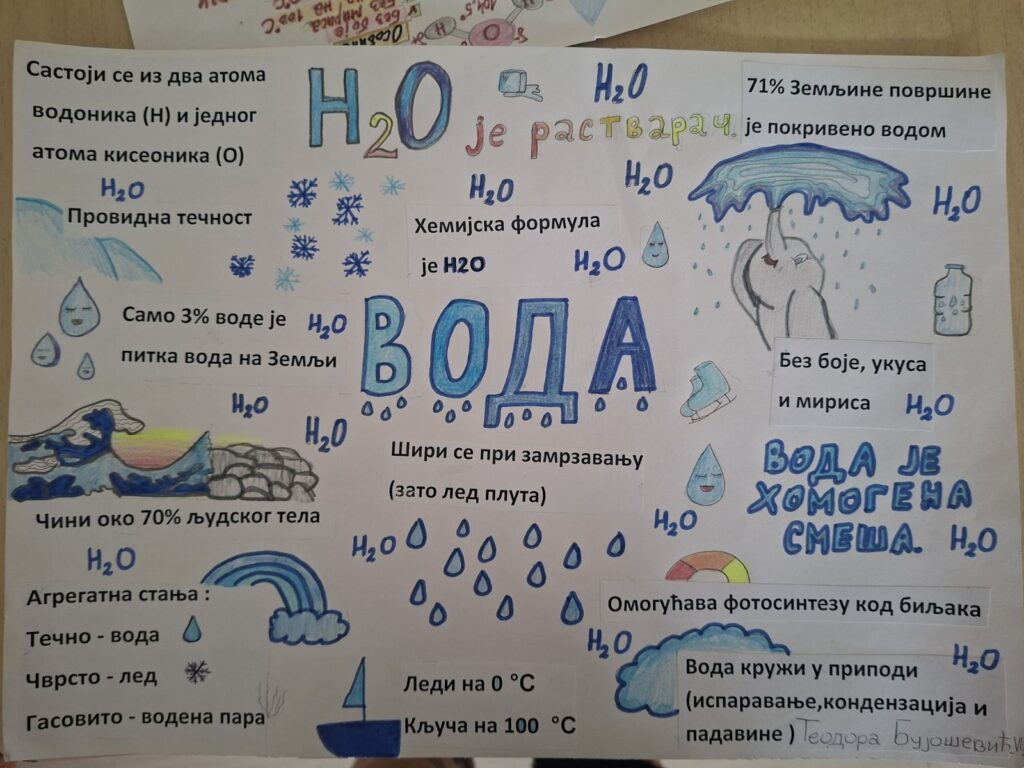 без боје
без мириса
на 100°C
Особине
104.5°
H
O
Састоји се из два атома
водоника (H) и једног
атома кисеоника (O)
H2O
је растварач.
H2O
71% Земљине површине
је покривено водом
H2O
Провидна течност
H2O
H2O
H2O
Хемијска формула
је H2O
H2O
Само 3% воде је
питка вода на Земљи
H2O
ВОДА
Без боје, укуса
и мириса
H2O
H2O
H2O
Шири се при замрзавању
(зато лед плута)
ВОДА ЈЕ
ХОМОГЕНА
СМЕША.
H2O
H2O
Чини око 70% људског тела
H2O
H2O
Агрегатна стања :
Течно - вода
Чврсто - лед
Гасовито - водена пара
Омогућава фотосинтезу код биљака
H2O
Леди на 0 °C
Кључа на 100 °C
Вода кружи у приподи
(испаравање,кондензација и
падавине )
H2O
Теодора Бујошевић,VII